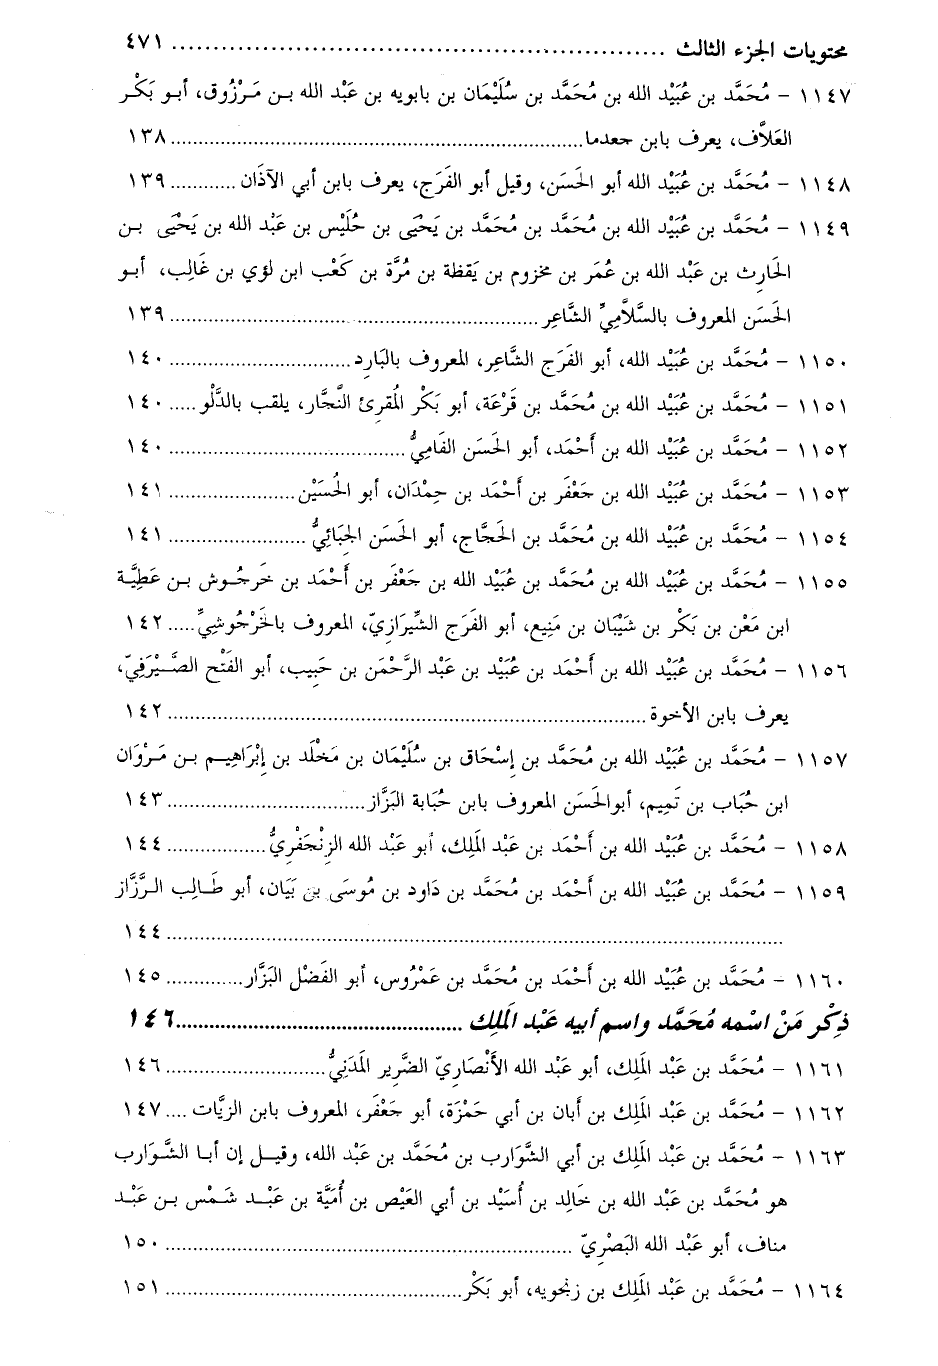 محتويات الجزء الثالث ........................................................... ٤٧١
١١٤٧ - مُحَمَّد بن عُبَيْد الله بن مُحَمَّد بن سُلَيْمَان بن بابويه بن عَبْد الله بـن مَـرْزُوق، أبـو بَكْر
العَلاَّف، يعرف بابن جعدما .................................................. ١٣٨
١١٤٨ - مُحَمَّد بن عُبَيْد الله أبو الحَسَن، وقيل أبو الفَرَج، يعرف بابن أبي الآذَان ............ ١٣٩
١١٤٩ - مُحَمَّد بن عُبَيْد الله بن مُحَمَّد بن مُحَمَّد بن يَحْيَى بن حُلَيْس بن عَبْد الله بن يَحْيَى بـن
الحَارِث بن عَبْد الله بن عُمَر بن مخزوم بن يَقظة بن مُرَّة بن كَعْب ابن لؤي بن غَالِب، أبـو
الحَسَن المعروف بالسَّلاَّمِيِّ الشَّاعِر .............................................. ١٣٩
١١٥٠ - مُحَمَّد بن عُبَيْد الله، أبو الفَرَج الشَّاعِر، المعروف بالبَارِد ........................ ١٤٠
١١٥١ - مُحَمَّد بن عُبَيْد الله بن مُحَمَّد بن قَرْعَة، أبو بَكْر المُقرئ النَّجَّار، يلقب بالدَّلْو ..... ١٤٠
١١٥٢ - مُحَمَّد بن عُبَيْد الله بن أَحْمَد، أبو الحَسَن الفَامِيُّ .............................. ١٤٠
١١٥٣ - مُحَمَّد بن عُبَيْد الله بن جَعْفَر بن أَحْمَد بن حِمْدَان، أبو الحُسَيْن ................ ١٤١
١١٥٤ - مُحَمَّد بن عُبَيْد الله بن مُحَمَّد بن الحَجَّاج، أبو الحَسَن الجِبَائِيُّ ................. ١٤١
١١٥٥ - مُحَمَّد بن عُبَيْد الله بن مُحَمَّد بن عُبَيْد الله بن جَعْفَر بن أَحْمَد بن خَرجُـوش بـن عَطِيَّـة
ابن مَعْن بن بَكْر بن شَيْبَان بن مَنِيع، أبو الفَرَج الشِّيرَازِيّ، المعروف بالخَرْجُوشِيِّ ..... ١٤٢
١١٥٦ - مُحَمَّد بن عُبَيْد الله بن أَحْمَد بن عُبَيْد بن عَبْد الرَّحْمَن بن حَبِيب، أبو الفَتْح الصَّـيْرَفِيّ،
يعرف بابن الأخوة ............................................................ ١٤٢
١١٥٧ - مُحَمَّد بن عُبَيْد الله بن مُحَمَّد بن إِسْحَاق بن سُلَيْمَان بن مَخْلَد بن إِبْرَاهِيـم بـن مَـرْوَان
ابن حُبَاب بن تَمِيم، أبوالحَسَن المعروف بابن حُبَابة البَزَّاز ......................... ١٤٣
١١٥٨ - مُحَمَّد بن عُبَيْد الله بن أَحْمَد بن عَبْد المَلِك، أبو عَبْد الله الزِنْجَفْرِيُّ .............. ١٤٤
١١٥٩ - مُحَمَّد بن عُبَيْد الله بن أَحْمَد بن مُحَمَّد بن دَاود بن مُوسَى بن بَيَان، أبو طَـالِب الـرَّزَّاز
.............................................................................. ١٤٤
١١٦٠ - مُحَمَّد بن عُبَيْد الله بن أَحْمَد بن مُحَمَّد بن عَمْرُوس، أبو الفَضْل البَزَّار ............. ١٤٥
ذِكْر مَنْ اسْمه مُحَمَّد واسم أبيه عَبْد المَلِك ........................................ ١٤٦
١١٦١ - مُحَمَّد بن عَبْد المَلِك، أبو عَبْد الله الأَنْصَارِيّ الضَّرِير المَدَنِيُّ .................... ١٤٦
١١٦٢ - مُحَمَّد بن عَبْد المَلِك بن أَبان بن أبي حَمْزَة، أبو جَعْفَر، المعروف بابن الزيَّات .... ١٤٧
١١٦٣ - مُحَمَّد بن عَبْد المَلِك بن أبي الشَّوَارب بن مُحَمَّد بن عَبْد الله، وقيـل إن أبـا الشَّـوَارب
هو مُحَمَّد بن عَبْد الله بن خَالِد بن أُسَيْد بن أبي العَيْص بن أُمَيَّة بن عَبْـد شَـمْس بـن عَبْـد
مناف، أبو عَبْد الله البَصْرِيّ .................................................... ١٥٠
١١٦٤ - مُحَمَّد بن عَبْد المَلِك بن زنجويه، أبو بَكْر ...................................... ١٥١